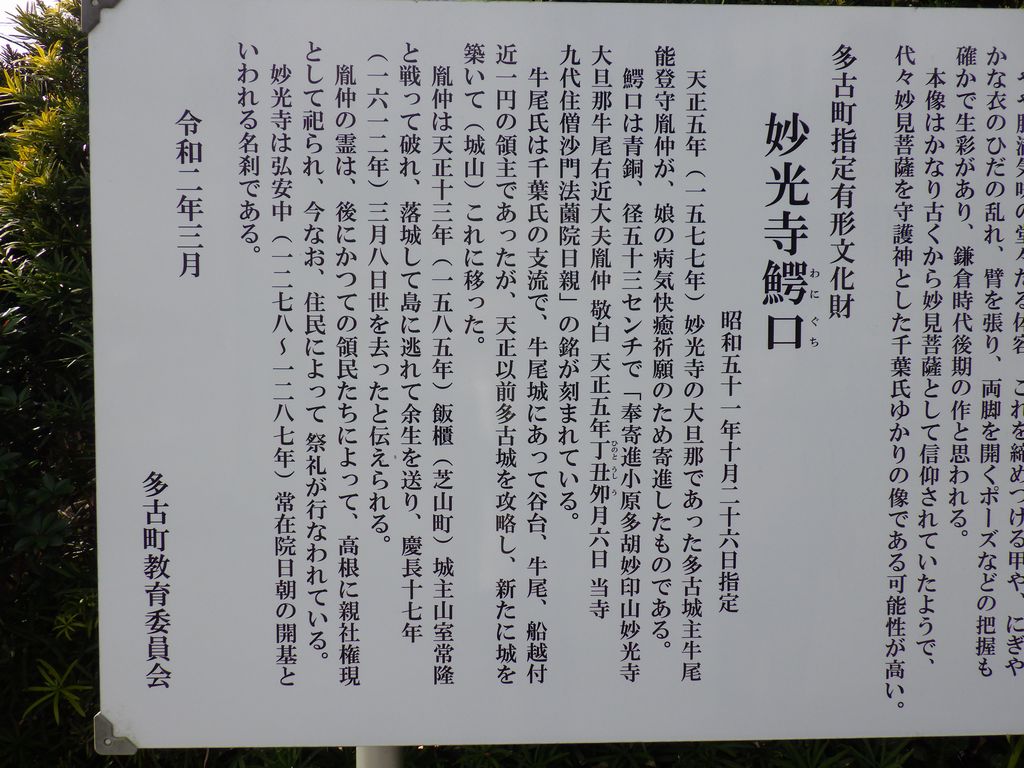 かな衣のひだの乱れ、臂を張り、両脚を開くポーズなどの把握も
確かで生彩があり、鎌倉時代後期の作と思われる。
本像はかなり古くから妙見菩薩として信仰されていたようで、
代々妙見菩薩を守護神とした千葉氏ゆかりの像である可能性が高い。
多古町指定有形文化財
妙光寺鰐口
わにぐち
昭和五十一年十月二十六日指定
天正五年（一五七七年）妙光寺の大旦那であった多古城主牛尾
能登守胤仲が、娘の病気快癒祈願のため寄進したものである。
鰐口は青銅、径五十三センチで「奉寄進小原多胡妙印山妙光寺
大旦那牛尾右近大夫胤仲 敬白 天正五年丁丑夘月六日 当寺
ひのとうしう
九代住僧沙門法薗院日親」の銘が刻まれている。
牛尾氏は千葉氏の支流で、牛尾城にあって谷台、牛尾、船越付
近一円の領主であったが、天正以前多古城を攻略し、新たに城を
築いて（城山）これに移った。
胤仲は天正十三年（一五八五年）飯櫃（芝山町）城主山室常隆
と戦って破れ、落城して島に逃れて余生を送り、慶長十七年
（一六一二年）三月八日世を去ったと伝えられる。
胤仲の霊は、後にかつての領民たちによって、高根に親社権現
として祀られ、今なお、住民によって 祭礼が行なわれている。
妙光寺は弘安中（一二七八～一二八七年）常在院日朝の開基と
いわれる名刹である。
令和二年三月
多古町教育委員会